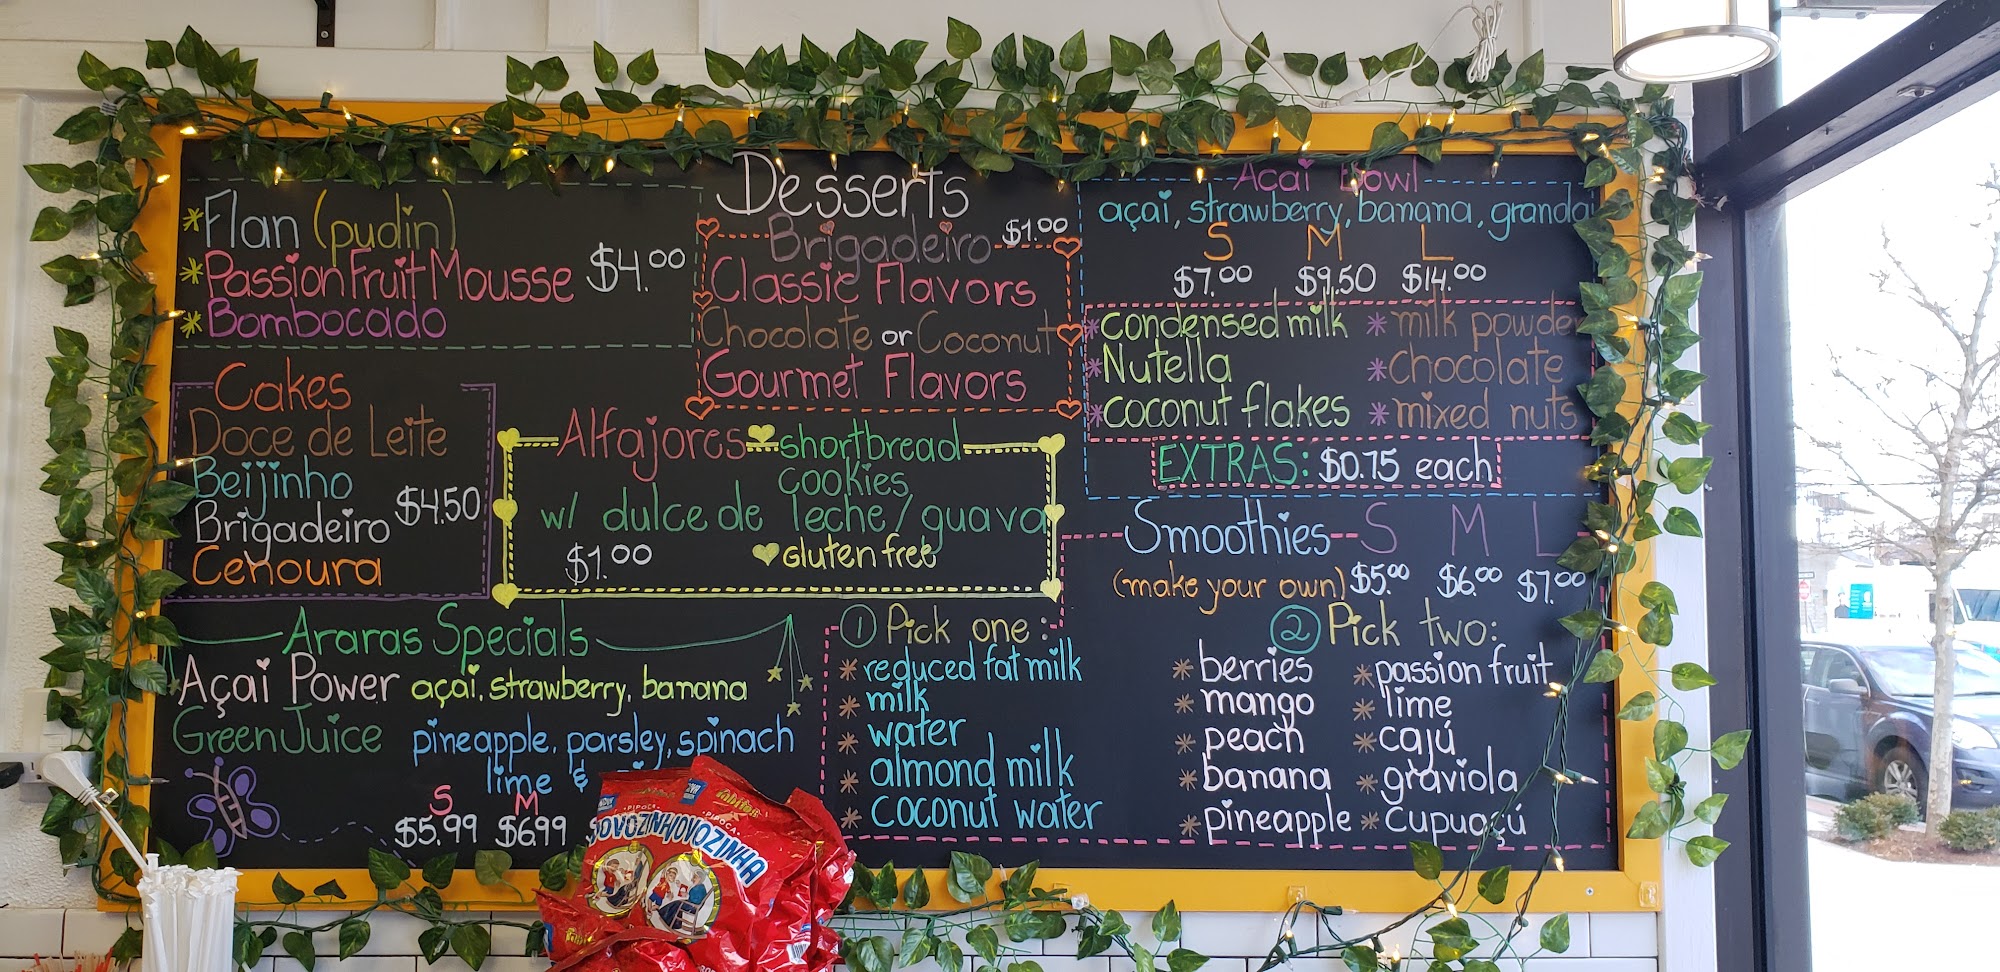 Desserts
*Flan (pudin)
*Passion Fruit Mousse $4.00
*Bombocado
Brigadeiro $1.00
Classic Flavors
Chocolate or Coconut
Gourmet Flavors
Cakes
Doce de Leite
Beijinho
Brigadeiro $4.50
Cenoura
Alfajores shortbread
cookies
w/ dulce de leche/guava
$1.00 gluten free
Araras Specials
Açai Power açai, strawberry, banana
Green Juice pineapple, parsley, spinach
lime &
S M
$5.99 $6.99
Açai Bowl
açai, strawberry, banana,
S M L
$7.00 $9.50 $14.00
*condensed milk *milk powder
*Nutella *chocolate
*coconut flakes *mixed nuts
EXTRAS: $0.75 each
Smoothies S M L
(make your own) $5.00 $6.00 $7.00
1 Pick one:
*reduced fat milk
*milk
*water
*almond milk
*coconut water
2 Pick two:
*berries *passion fruit
*mango *lime
*peach *cajú
*banana *graviola
*pineapple *cupuaçú
PIPOCA
PIPOCA
VOVOZINHA